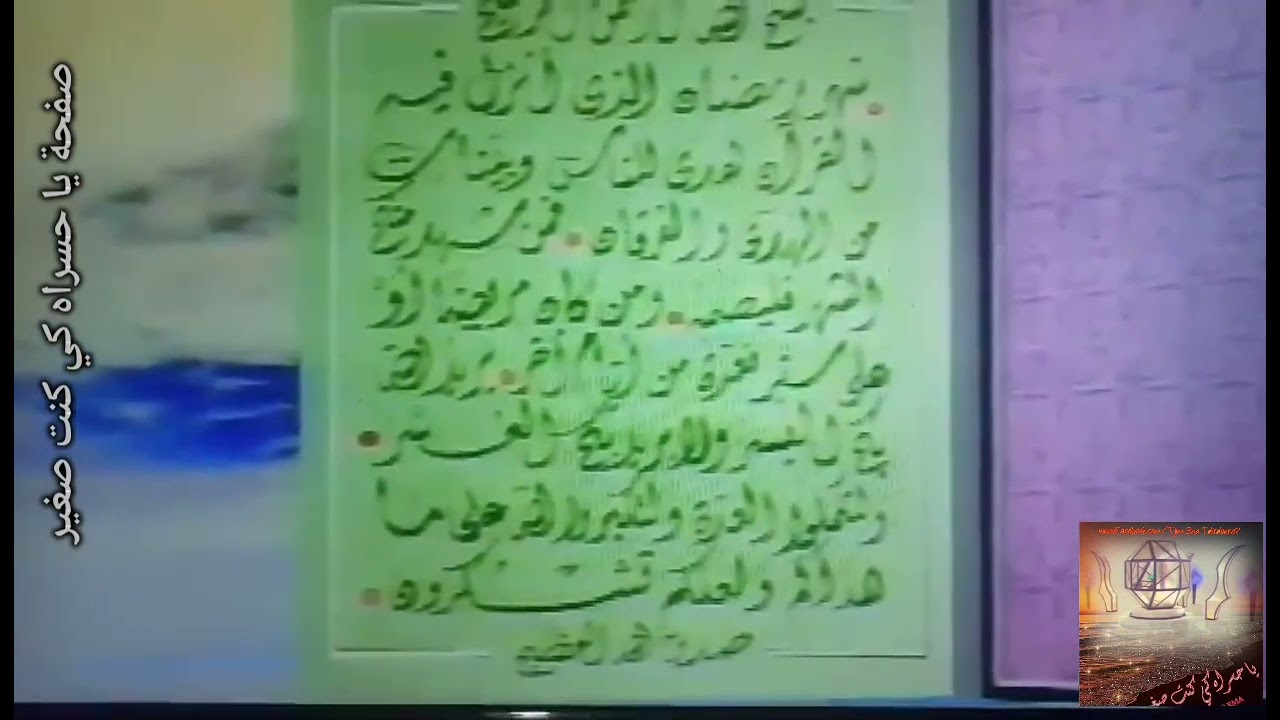 بسم الله الرحمن الرحيم
شهر رمضان الذي أنزل فيه
القرآن هدى للناس وبينات
من الهدى والفرقان فمن شهد منكم
الشهر فليصمه ومن كان مريضا أو
على سفر فعدة من أيام أخر يريد الله
بكم اليسر ولا يريد بكم العسر
ولتكملوا العدة ولتكبروا الله على ما
هداكم ولعلكم تشكرون
صدق الله العظيم
صفحة يا حسراه كي كنت صغير
يا حسراه كي كنت صغير